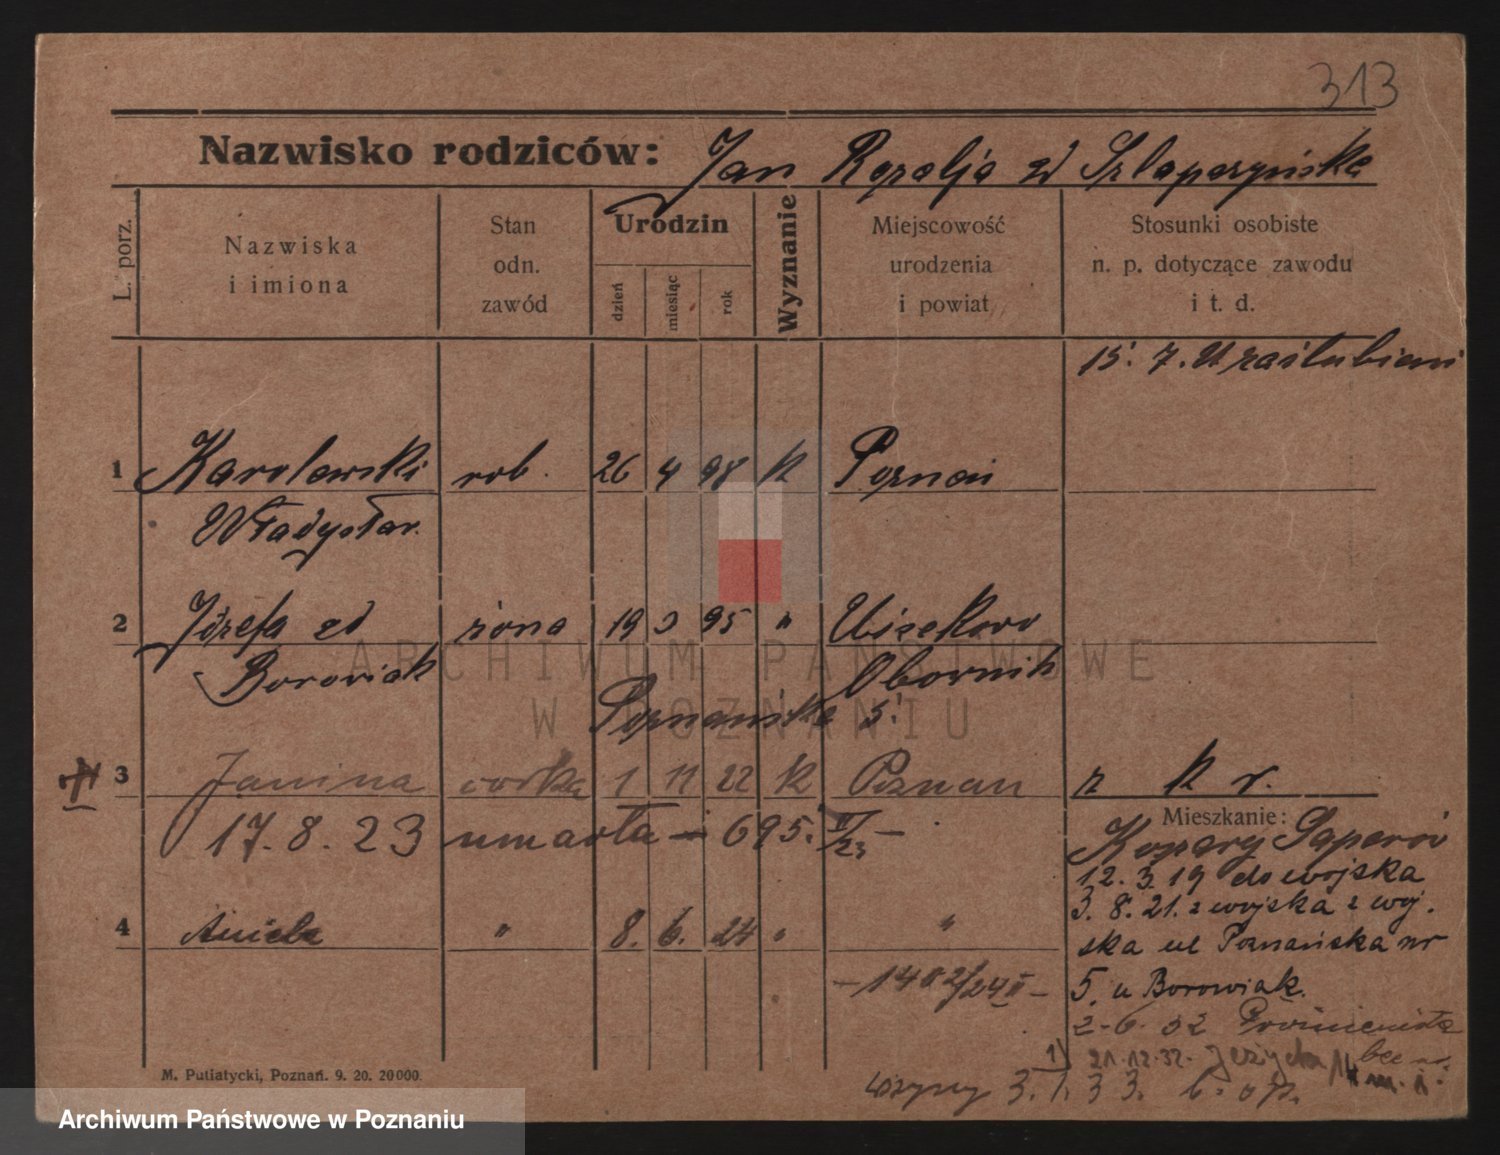 313
Nazwisko rodziców: Jan Rozalja zd Szlapczyńska
L. porz.
Nazwiska i imiona
Stan odn. zawód
Urodzin
dzień
miesiąc
rok
Wyznanie
Miejscowość urodzenia i powiat
Stosunki osobiste n. p. dotyczące zawodu i t. d.
15. 7.
1 Karolewski rob. 26 4 98 k Poznań
Władysław
2 Józefa zd żona 19 3 95 "
Borowiak Obornik
Poznańska 5.
3 Janina córka 1 11 22 k Poznan
Mieszkanie:
17. 8. 23 umarła 695.
Koszary Saperów
12. 3. 19 do wojska
3. 8. 21. z wojska z woj.
4 Aniela " 8. 6. 24 " "
ska ul Poznańska nr
- 1402/24 II -
5. u Borowiak.
2-6. 32
21. 12. 32. Jeżycka 14 m. 1.
3. 1. 33.
M. Putiatycki, Poznań. 9. 20. 20000.
ARCHIWUM PAŃSTWOWE
W POZNANIU
Archiwum Państwowe w Poznaniu